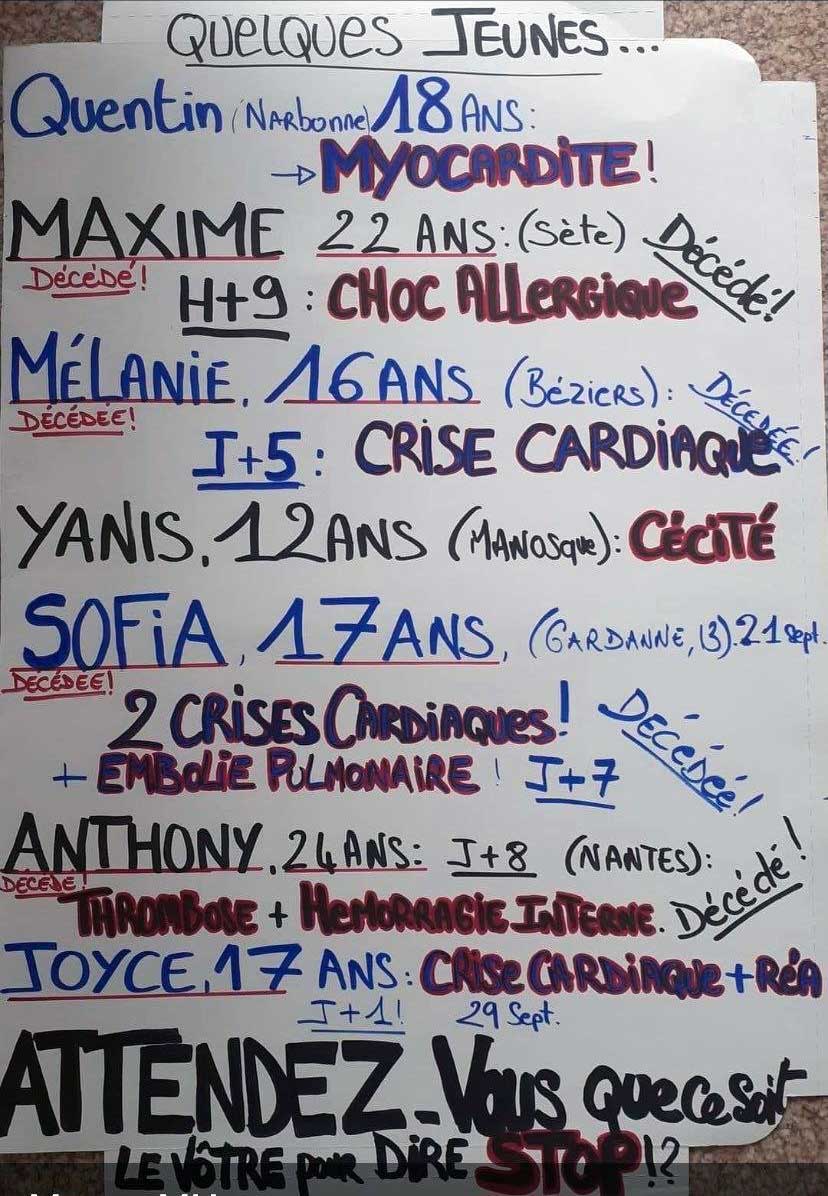 QUELQUES JEUNES...
Quentin (NARbonne) 18 ANS:
→ MYOCARDiTE!
MAXIME 22 ANS: (Sète) Décédé!
Décédé!
H+9 : CHOC ALLeRGiQue
MÉLANiE, 16 ANS (BéziERS): DÉCÉDÉE!
DÉCÉDÉE!
J+5 : CRiSE CARDiAQUE
YANIS, 12 ANS (MANOSque): CÉCiTÉ
SOFiA, 17 ANS, (GARDANNE, 13). 21 Sept.
DECÉDÉE!
2 CRISES CARDiAQues! DÉCÉDÉE!
+ EMBOLiE PULMONAiRE ! J+7
ANTHONY, 24 ANS: J+8 (NANTES): Décédé!
DÉCÉDÉ!
THROMBOSE + HéMORRAGiE INTERNE.
JOYCE, 17 ANS: CRiSe CARDiAQue + RéA
J+1! 29 Sept.
ATTENDEZ-Vous que ce soit
LE VÔTRE pour DiRE STOP!?